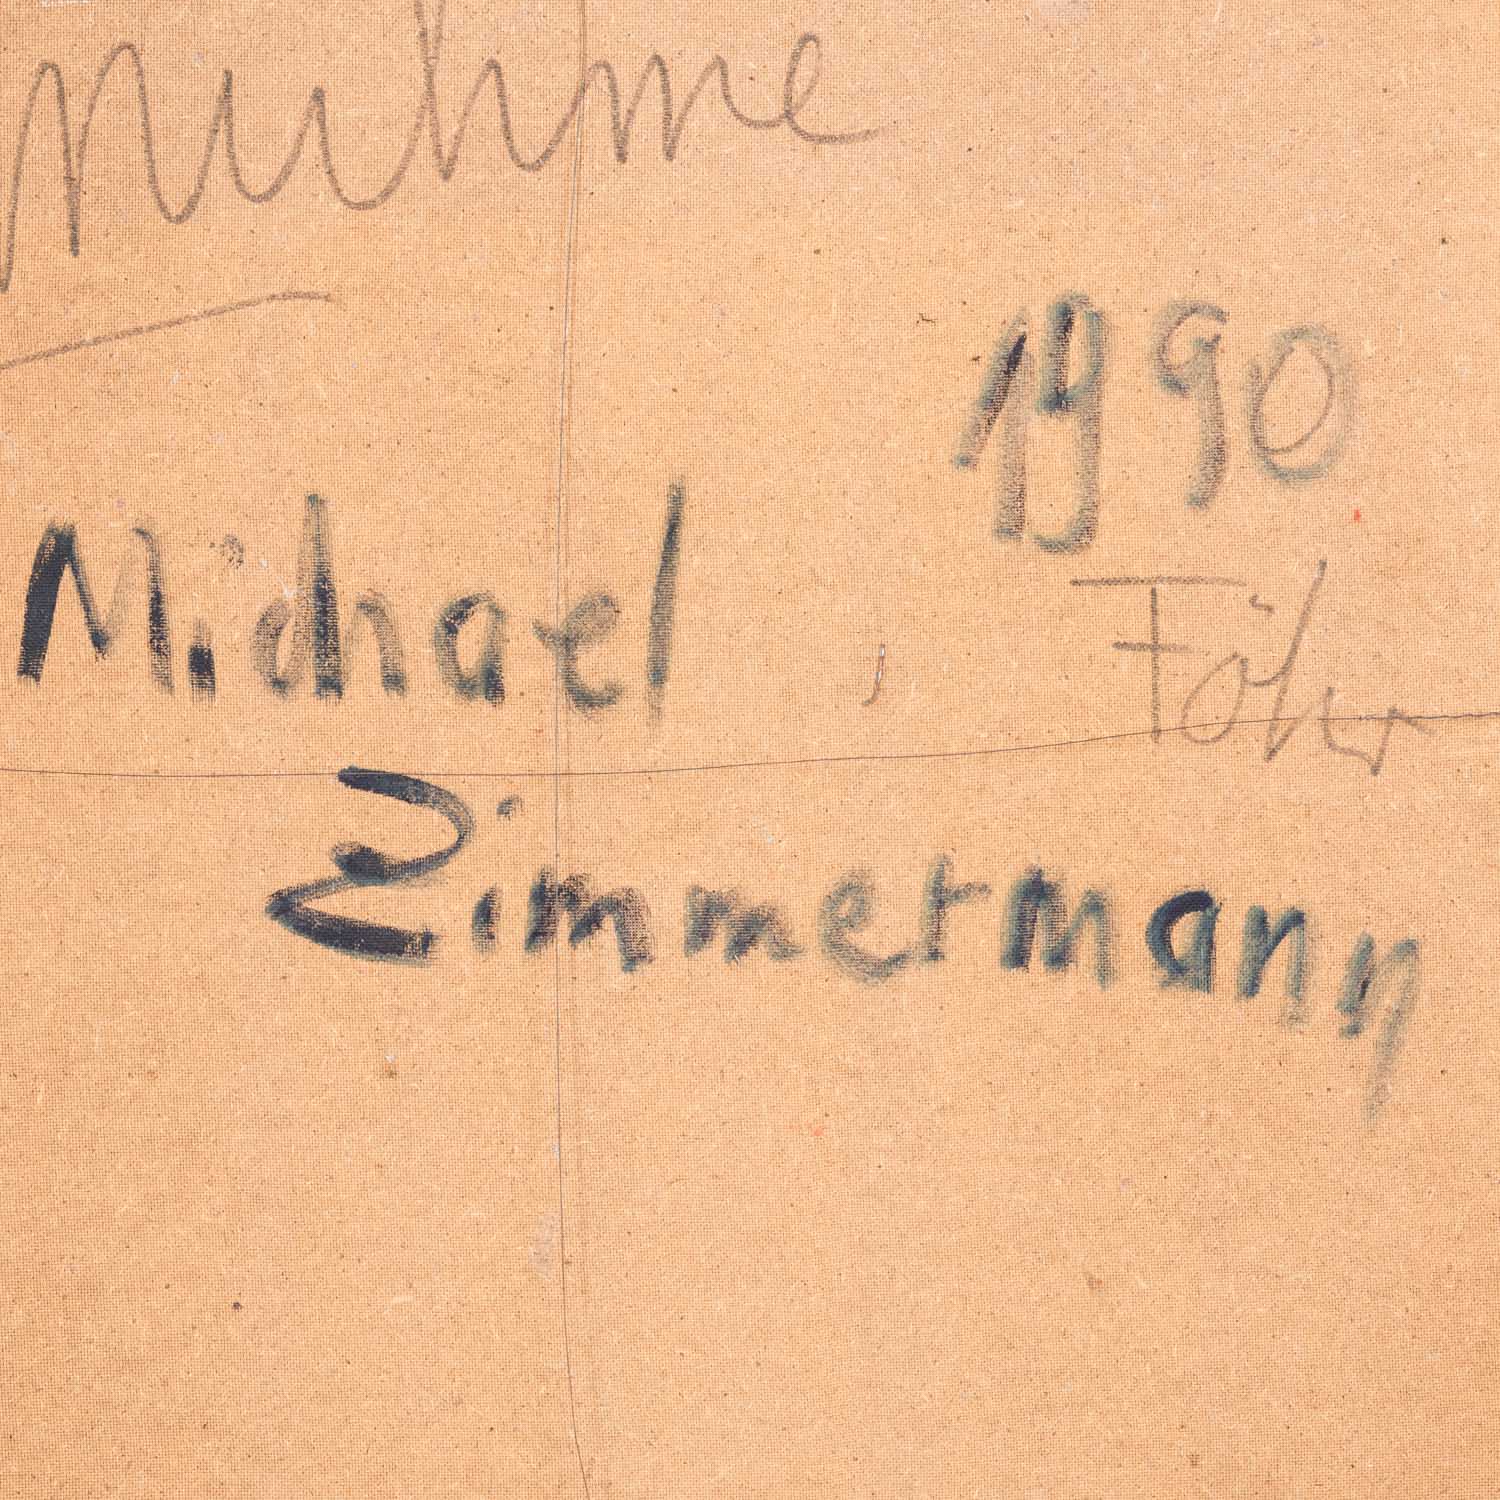 1990
Michael
Föhr
Zimmermann